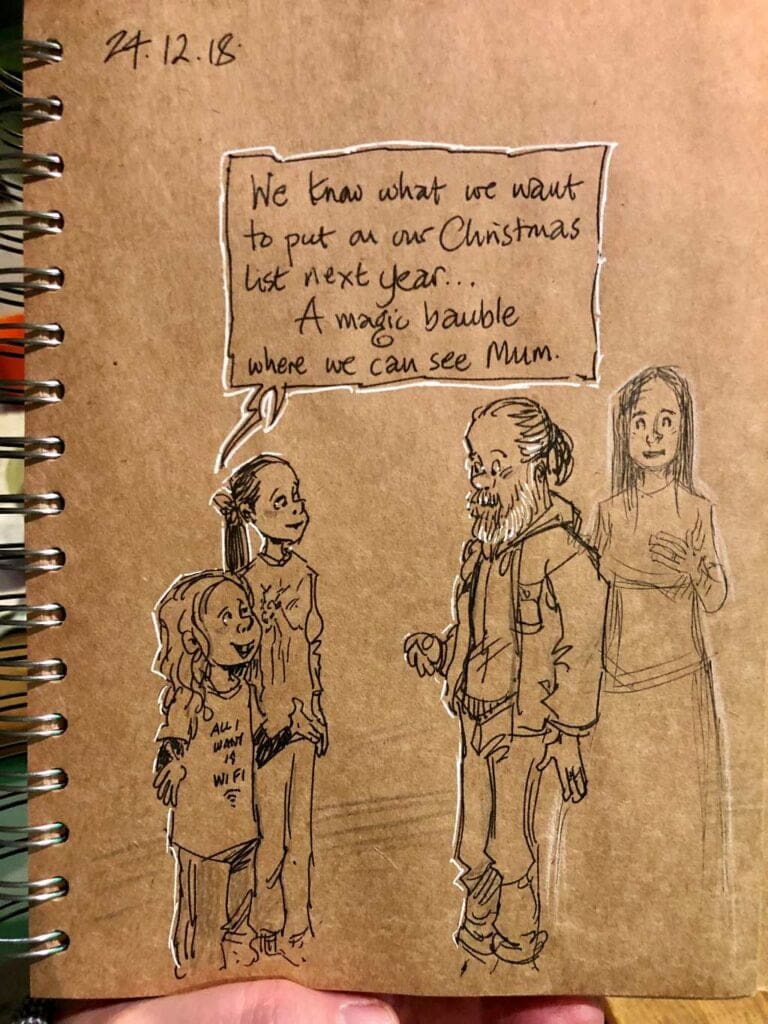 24.12.18.
We know what we want
to put on our Christmas
list next year...
A magic bauble
where we can see Mum.
ALL I
WANT
IS
WIFI